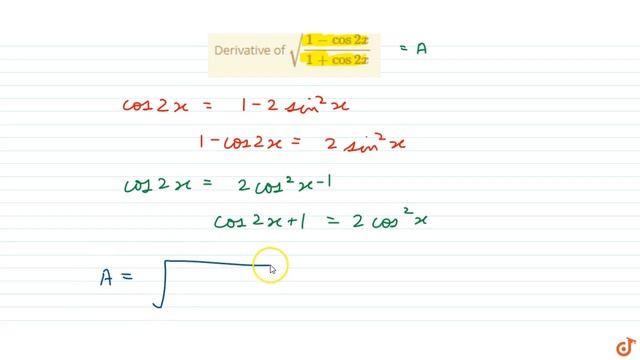 Derivative of √((1 − cos 2x)/(1 + cos 2x)) = A
cos 2x = 1 - 2 sin²x
1 - cos 2x = 2 sin²x
cos 2x = 2 cos²x - 1
cos 2x + 1 = 2 cos²x
A = √